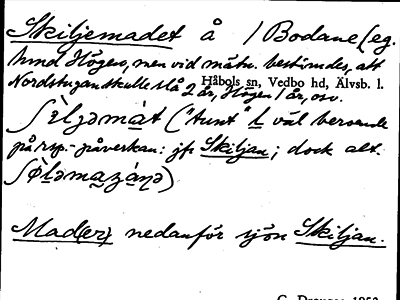 Skiljemadet å / Bodane (eg.
hmd Högen, men vid mätn. bestämdes, att
Nordstugan skulle slå 2 år, Högen 1 år, osv.
Håbols sn, Vedbo hd, Älvsb. l.
("tunt" l väl beroende
på rsp.-påverkan: jfr Skiljan; dock alt.
Mad(er) nedanför sjön Skiljan.